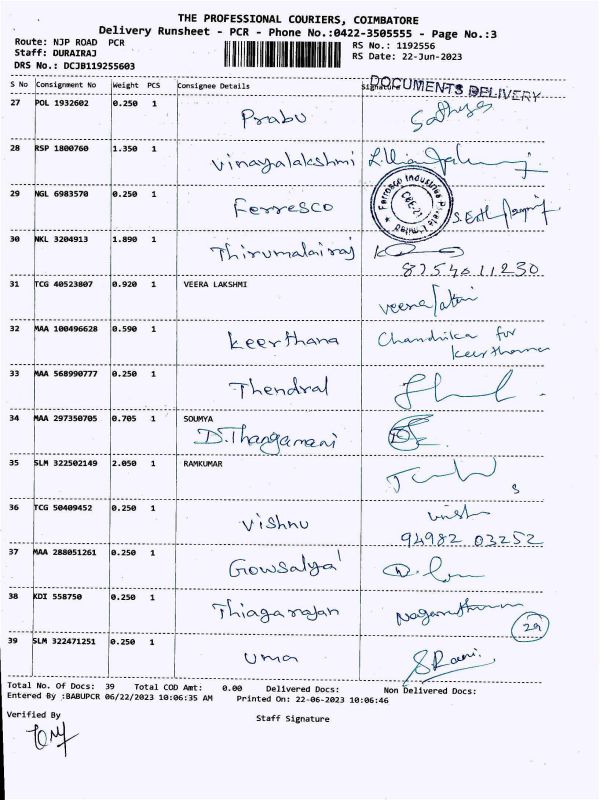 THE PROFESSIONAL COURIERS, COIMBATORE
Delivery Runsheet - PCR - Phone No.:0422-3505555 - Page No.:3
Route: NJP ROAD PCR
Staff: DURAIRAJ
DRS No.: DCJB119255603
RS No.: 1192556
RS Date: 22-Jun-2023
S No Consignment No Weight PCS Consignee Details Signature
DOCUMENTS DELIVERY
27 POL 1932602 0.250 1 Prabu Sathya
28 RSP 1800760 1.350 1 Vinayalakshmi
29 NGL 6983570 0.250 1 Ferresco
Ferresco Industries Private Limited
30 NKL 3204913 1.890 1 Thirumalairaj
8754011230
31 TCG 40523807 0.920 1 VEERA LAKSHMI
32 MAA 100496628 0.590 1 Keerthana Chandrika for
Keerthana
33 MAA 568990777 0.250 1 Thendral
34 MAA 297350705 0.705 1 SOUMYA
D.Thangamani
35 SLM 322502149 2.050 1 RAMKUMAR
36 TCG 50409452 0.250 1 Vishnu
94982 03252
37 MAA 288051261 0.250 1 Gowsalya
38 KDI 558750 0.250 1 Thiagarajan
29
39 SLM 322471251 0.250 1 Uma S.Rani.
Total No. Of Docs: 39 Total COD Amt: 0.00 Delivered Docs: Non Delivered Docs:
Entered By :BABUPCR 06/22/2023 10:06:35 AM Printed On: 22-06-2023 10:06:46
Verified By
Staff Signature